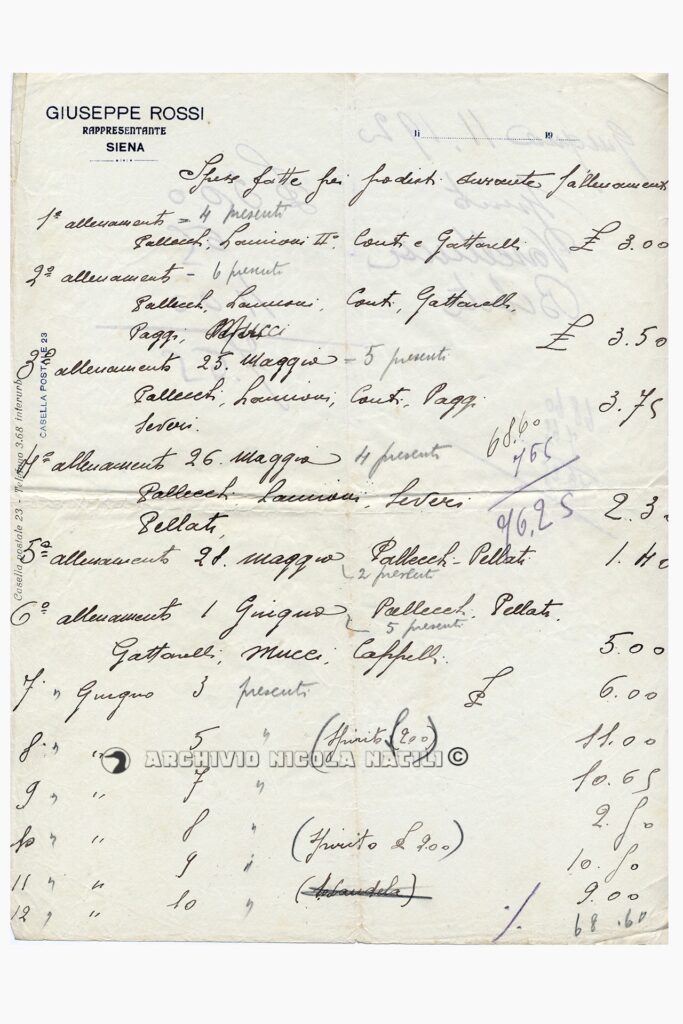 GIUSEPPE ROSSI
RAPPRESENTANTE
SIENA
li 19
Spese fatte pei podisti durante l'allenamento
1º allenamento = 4 presenti
Pallecchi, Lannioni IIº. Conti e Gattarelli £ 3.00
2º allenamento - 6 presenti
Pallecchi, Lannioni, Conti, Gattarelli,
Paggi, £ 3.50
3º allenamento 25. Maggio = 5 presenti
Pallecchi, Lannioni, Conti, Paggi 3.75
Severi.
4º allenamento 26. Maggio 4 presenti
68.60
765
76,25
Pallecchi Lannioni, Severi 2.3
Pellati,
5º allenamento 28. Maggio Pallecchi-Pellati 1.40
2 presenti
6º allenamento 1 Giugno Pallecchi, Pellati,
5 presenti
Gattarelli, Mucci, Cappelli. 5.00
7. " Giugno 3 presenti £ 6.00
8. " " 5 " (Spirito £ 2.00) 11.00
9 " " 7 " 10.65
10 " " 8 " (Spirito £ 2.00) 2.50
11 " " 9 " 10.50
12 " " 10 " 9.00
68.60
CASELLA POSTALE 23
Casella postale 23 - Telefono 3.68 interurb.
ARCHIVIO NICOLA NATILI ©